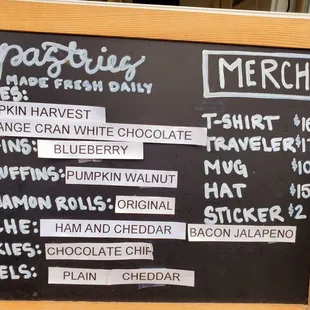 pastries
MADE FRESH DAILY
ES:
PKIN HARVEST
ANGE CRAN WHITE CHOCOLATE
INS: BLUEBERRY
UFFINS: PUMPKIN WALNUT
NAMON ROLLS: ORIGINAL
HE: HAM AND CHEDDAR
BACON JALAPENO
KIES: CHOCOLATE CHIP
ELS: PLAIN CHEDDAR
MERCH
T-SHIRT $1
TRAVELER $1
MUG $10
HAT $15
STICKER $2